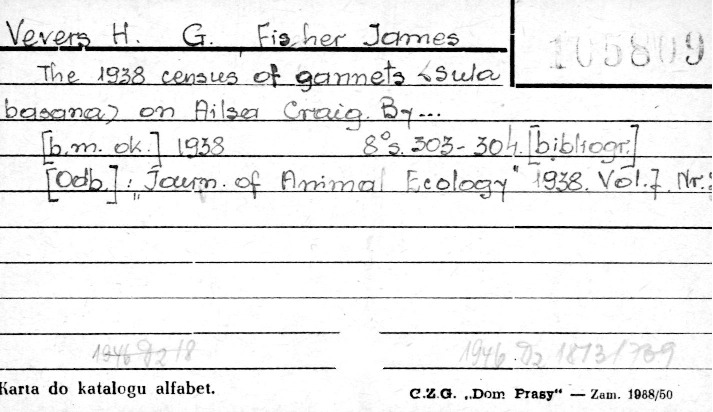 Vevers H. G. Fischer James
105809
The 1938 census of gannets <Sula
basana> on Ailsa Craig. By...
[b.m. ok.] 1938 8° s. 303-304. [bibliogr.]
[Odb.]: „Journ. of Animal Ecology" 1938. Vol. 7. Nr.
1946 D2 18 1946 D2 1873/739
Karta do katalogu alfabet. C.Z.G. „Dom Prasy" — Zam. 1988/50